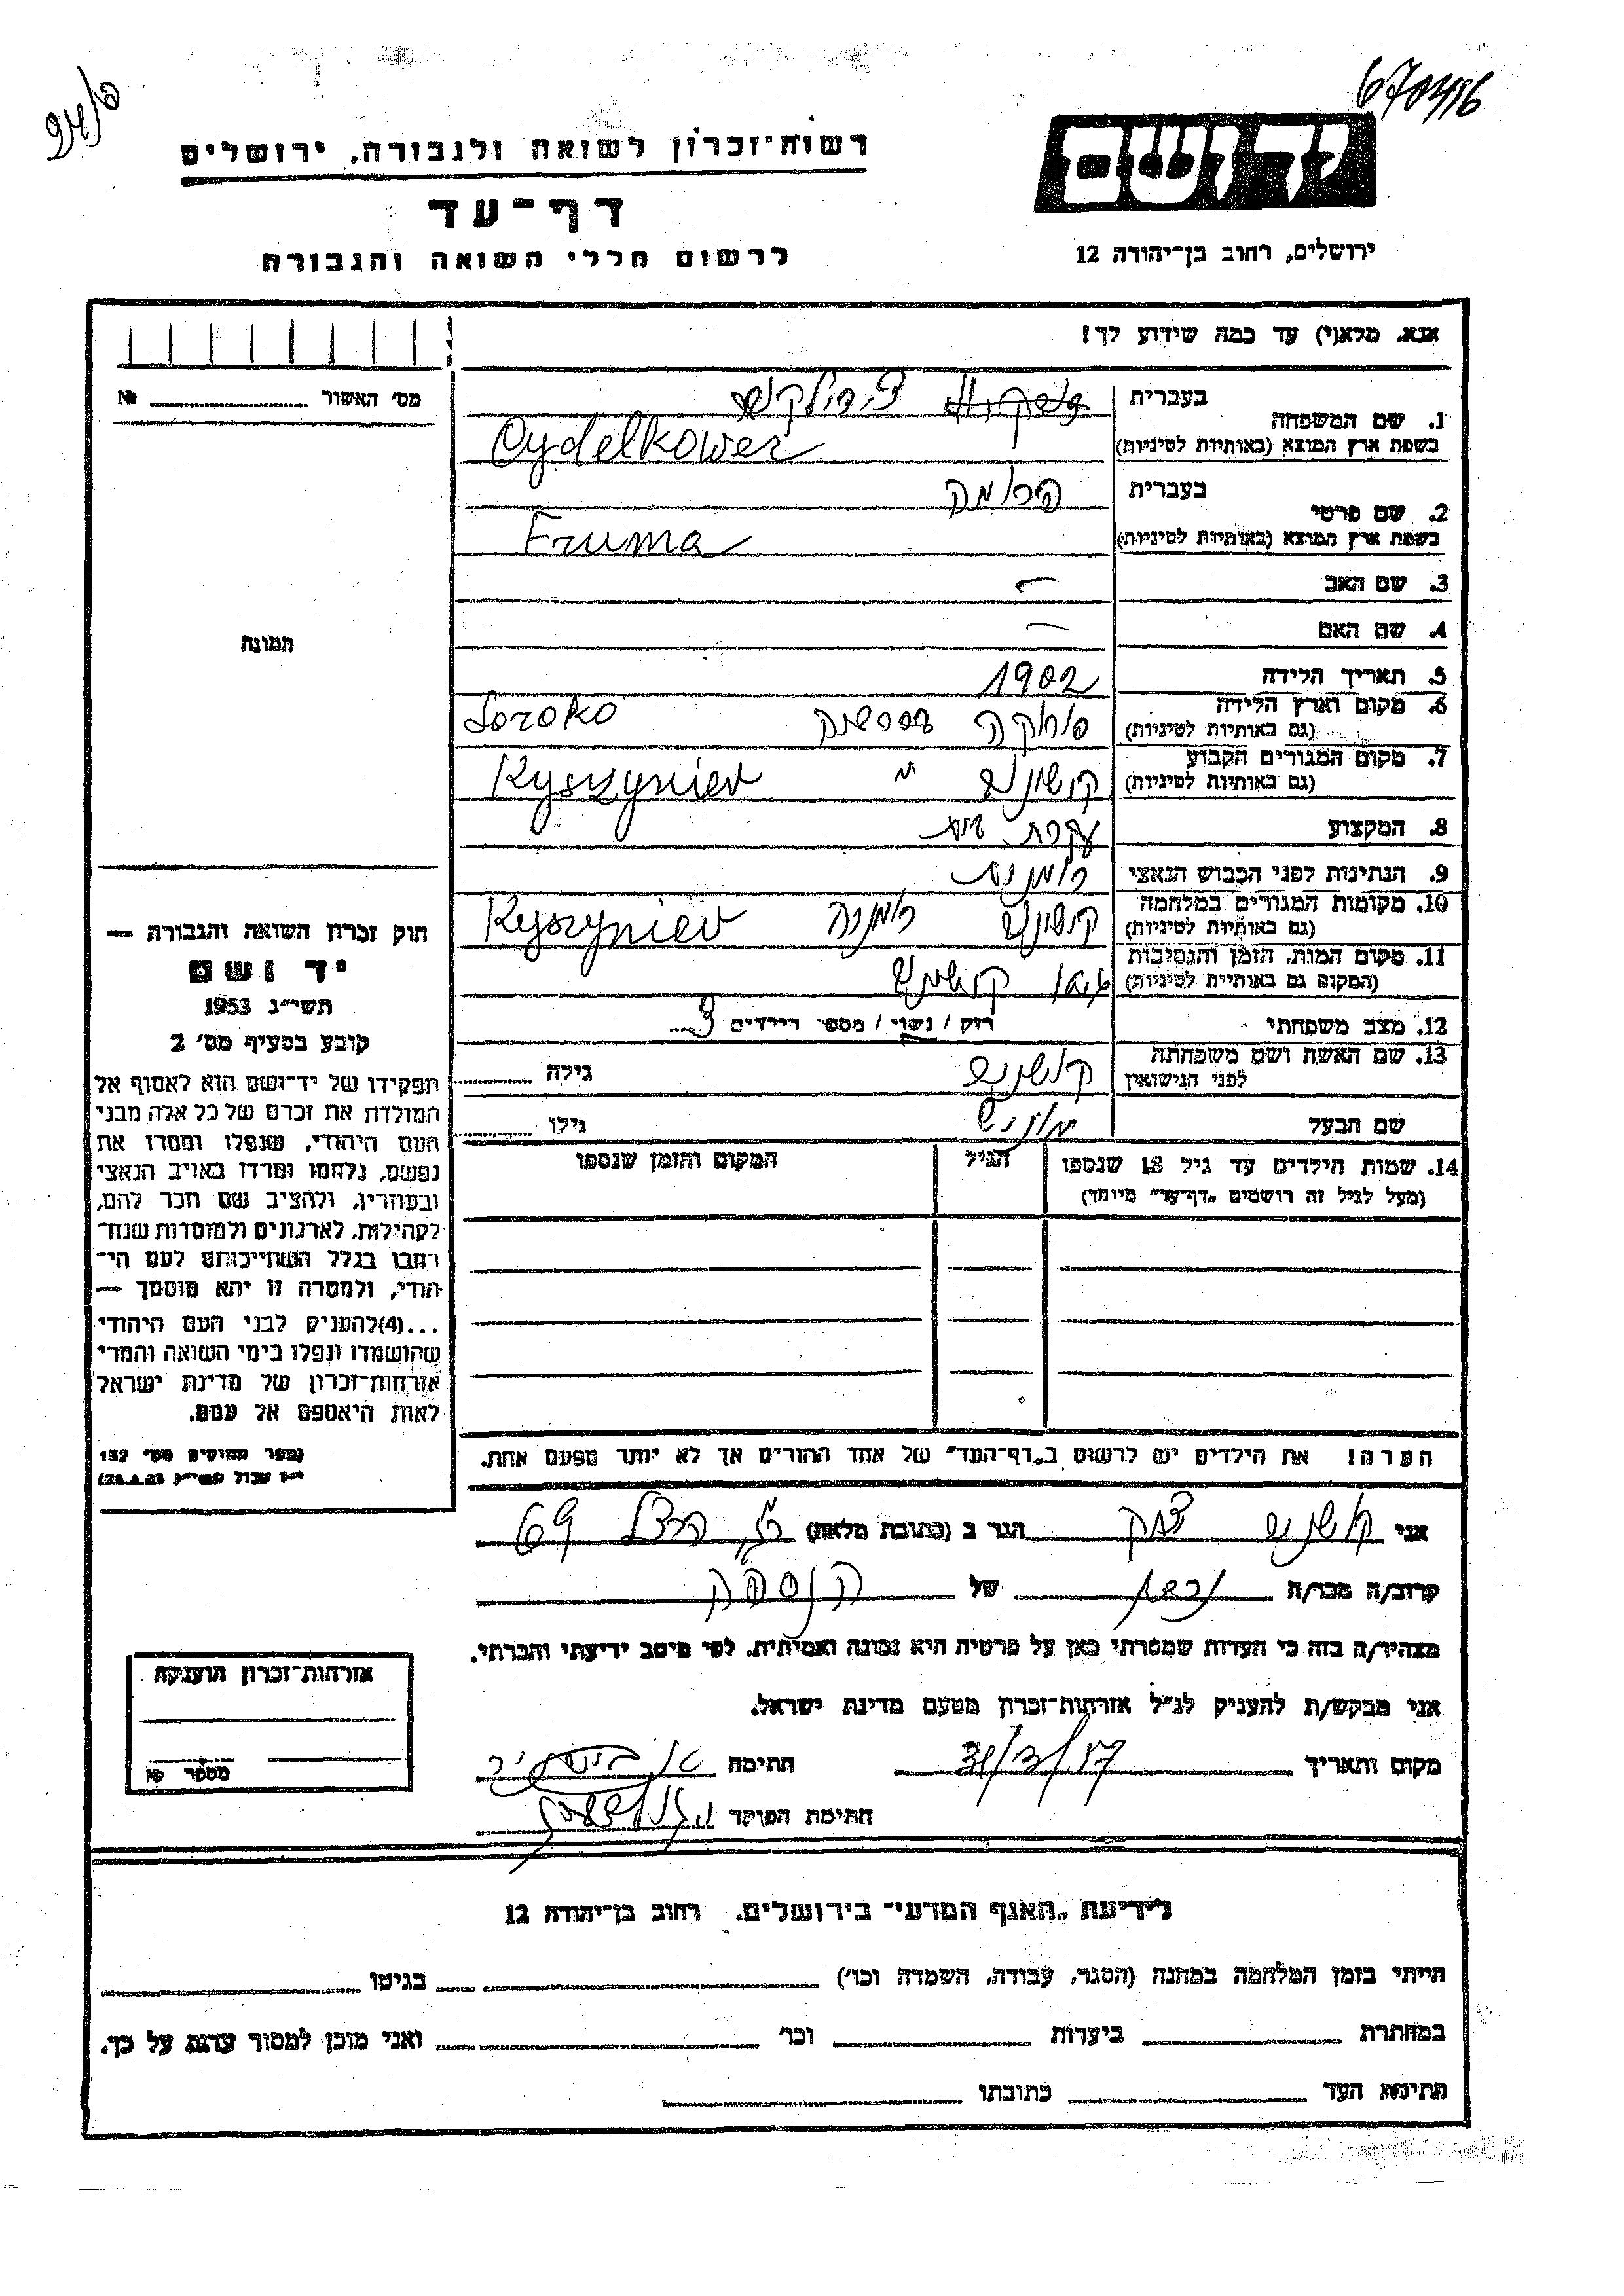 670496
יד ושם
רשות־זכרון לשואה ולגבורה, ירושלים
דף־עד
לרשום חללי השואה והגבורה
ירושלים, רחוב בן־יהודה 12
אנא, מלא(י) עד כמה שידוע לך!
מס׳ האשור № 
בעברית
1. שם המשפחה
בשפת ארץ המוצא (באותיות לטיניות) Cydelkower
בעברית פרומה
2. שם פרטי
בשפת ארץ המוצא (באותיות לטיניות) Fruma
3. שם האב –
4. שם האם –
5. תאריך הלידה 1902
6. מקום וארץ הלידה סורוקה Soroko
(גם באותיות לטיניות)
7. מקום המגורים הקבוע קישינב Kyszyniev
(גם באותיות לטיניות)
8. המקצוע עקרת בית
9. הנתינות לפני הכבוש הנאצי רומנית
10. מקומות המגורים במלחמה קישינב רומניה Kyszyniev
(גם באותיות לטיניות)
11. מקום המות, הזמן והנסיבות גיטו קישינב
(המקום גם באותיות לטיניות)
12. מצב משפחתי רוק / נשוי / מספר הילדים 3
13. שם האשה ושם משפחתה גילה
לפני הנישואין
שם הבעל גילו
14. שמות הילדים עד גיל 18 שנספו הגיל המקום והזמן שנספו
(מעל לגיל זה רושמים „דף־עד” מיוחד)
הערה! את הילדים יש לרשום ב„דף־העד” של אחד ההורים אך לא יותר מפעם אחת.
תמונה
חוק זכרון השואה והגבורה —
יד ושם
תשי״ג 1953
קובע בסעיף מס׳ 2
תפקידו של יד־ושם הוא לאסוף אל
המולדת את זכרם של כל אלה מבני
העם היהודי, שנפלו ומסרו את
נפשם, נלחמו ומרדו באויב הנאצי
ובעוזריו, ולהציב שם וזכר להם,
לקהילות, לארגונים ולמוסדות שנח־
רבו בגלל השתייכותם לעם הי־
הודי, ולמטרה זו יהא מוסמך —
...(4)להעניק לבני העם היהודי
שהושמדו ונפלו בימי השואה והמרי
אזרחות־זכרון של מדינת ישראל
לאות היאספם אל עמם.
(ספר החוקים מס׳ 132
אני הגר ב (כתובת מלאה) 69
קרוב/ה מכר/ה של
מצהיר/ה בזה כי העדות שמסרתי כאן על פרטיה היא נכונה ואמיתית, לפי מיטב ידיעתי והכרתי.
אני מבקש/ת להעניק לנ״ל אזרחות־זכרון מטעם מדינת ישראל.
מקום ותאריך חתימה
חתימת הפוקד
אזרחות־זכרון הוענקה
מספר №
לידיעת „האגף המדעי” בירושלים, רחוב בן־יהודה 12
הייתי בזמן המלחמה במחנה (הסגר, עבודה, השמדה וכו׳) בגיטו
במחתרת ביערות וכו׳ ואני מוכן למסור עדות על כך.
חתימת העד כתובתו